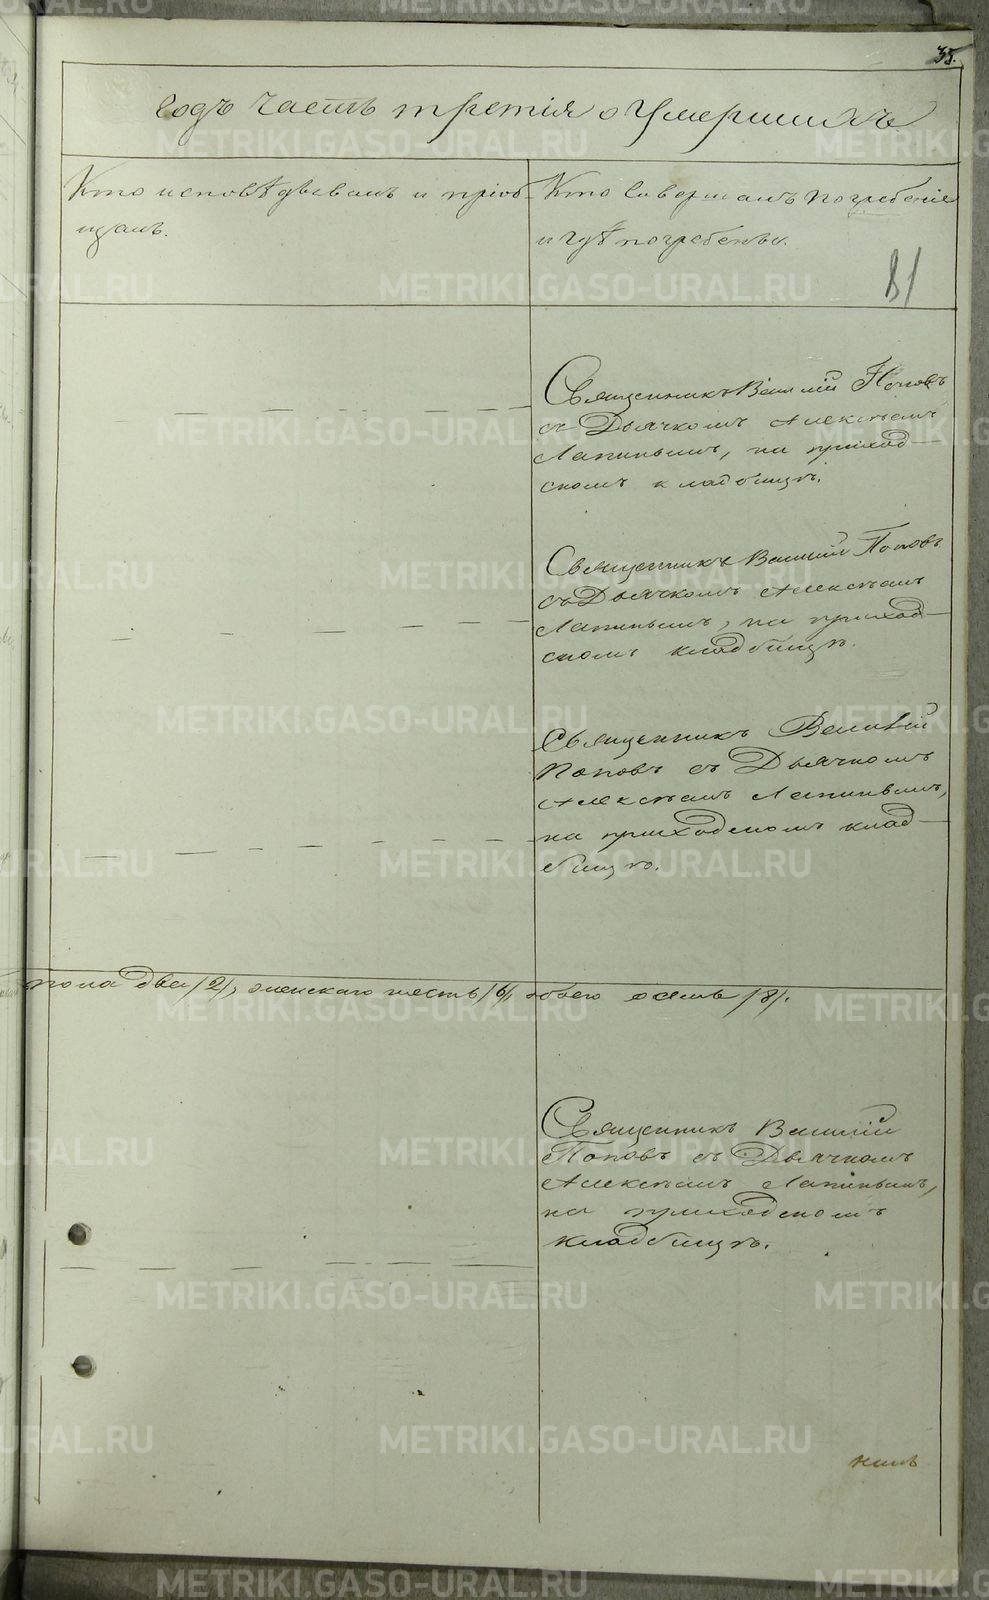 35.
годъ часть третія о умершихъ
Кто исповѣдывалъ и пріоб-
щалъ.
Кто совершалъ погребеніе
и гдѣ погребены.
81
Священникъ Василій Поповъ
съ Дьячкомъ Алексѣемъ
Лапинымъ, на приход-
скомъ кладбищѣ.
Священникъ Василій Поповъ
съ Дьячкомъ Алексѣемъ
Лапинымъ, на приход-
скомъ кладбищѣ.
Священникъ Василій
Поповъ съ Дьячкомъ
Алексѣемъ Лапинымъ,
на приходскомъ клад-
бищѣ.
пола два /2/, женскаго шесть /6/, обоего осемь /8/.
Священникъ Василій
Поповъ съ Дьячкомъ
Алексѣемъ Лапинымъ,
на приходскомъ
кладбищѣ.
METRIKI.GASO-URAL.RU